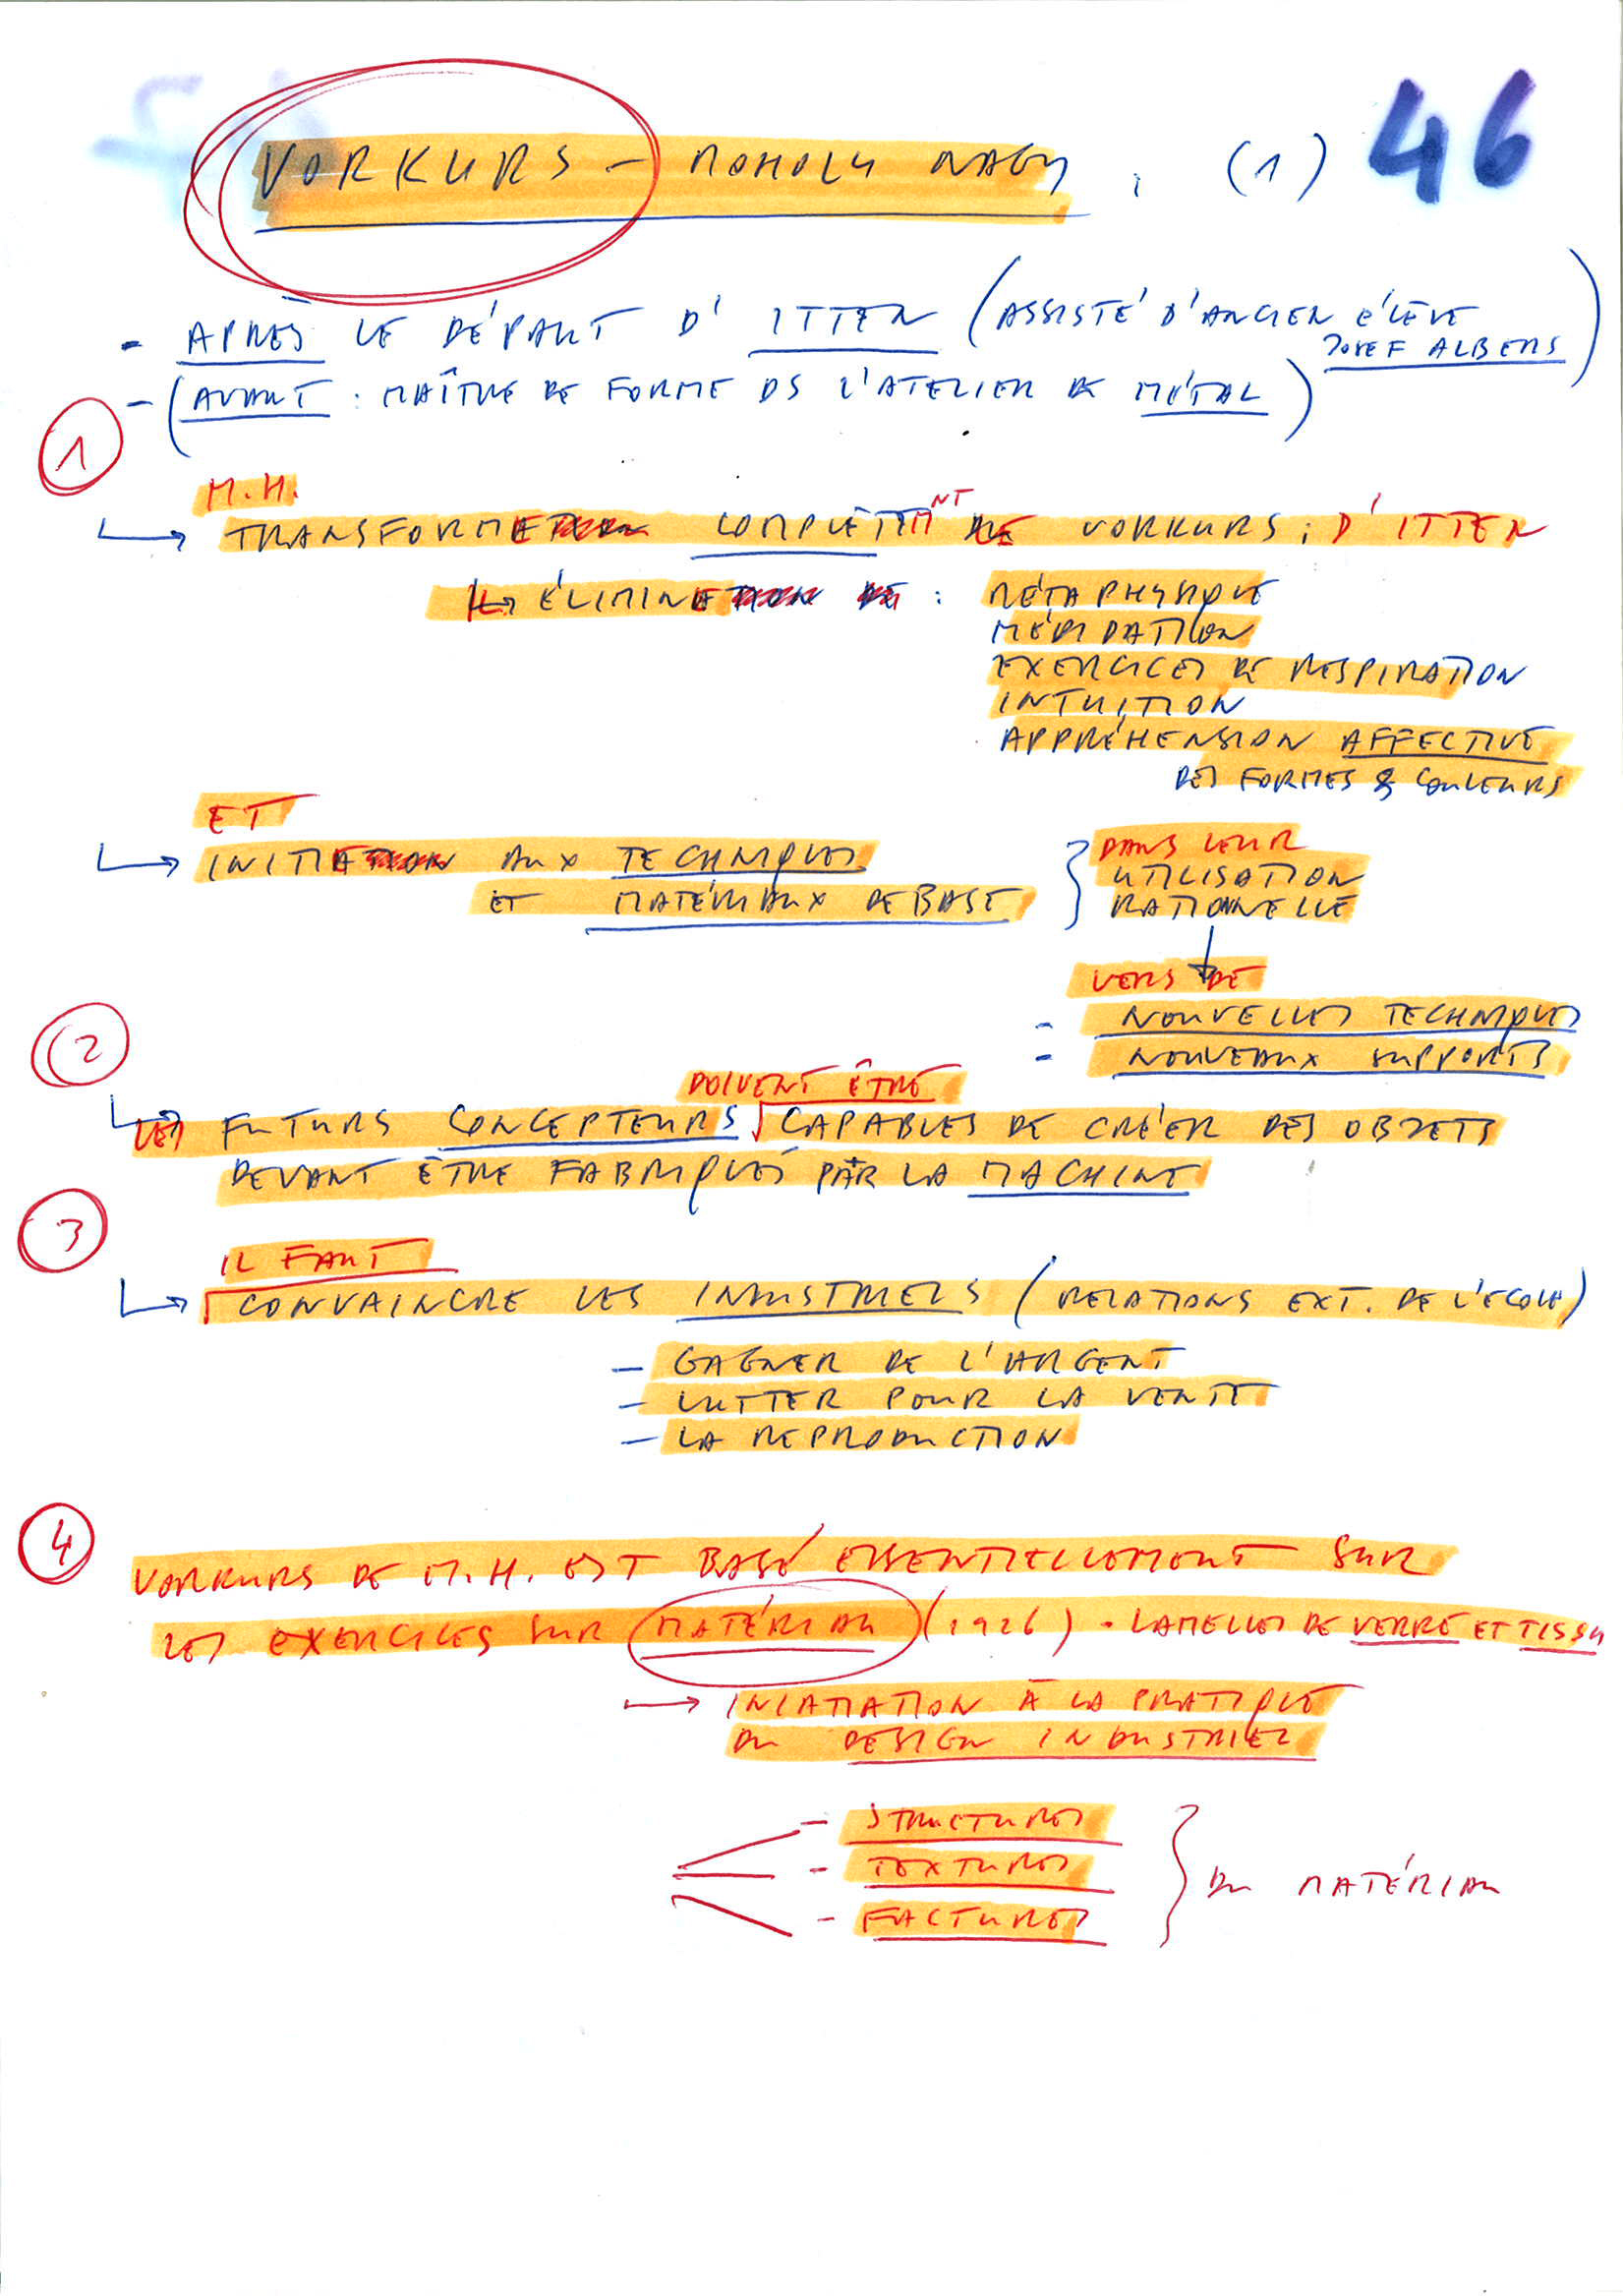 VORKURS - MOHOLY NAGY : (1) 46
- APRÈS LE DÉPART D' ITTEN (ASSISTÉ D'ANCIEN ÉLÈVE
JOSEF ALBERS)
- (AVANT : MAÎTRE DE FORME DS L'ATELIER DE MÉTAL)
1
M.H.
TRANSFORME COMPLÈTEMNT LE VORKURS : D'ITTEN
↳ ÉLIMINE : MÉTAPHYSIQUE
MÉDIDATION
EXERCICES DE RESPIRATION
INTUITION
APPRÉHENSION AFFECTIVE
DES FORMES & COULEURS
ET
INITIE AUX TECHNIQUES } DANS LEUR
UTILISATION
ET MATÉRIAUX DE BASE RATIONNELLE
VERS DE
- NOUVELLES TECHNIQUES
- NOUVEAUX SUPPORTS
2
DOIVENT ÊTRE
LES FUTURS CONCEPTEURS CAPABLES DE CRÉER DES OBJETS
DEVANT ÊTRE FABRIQUÉS PAR LA MACHINE
3
IL FAUT
CONVAINCRE LES INDUSTRIELS (RELATIONS EXT. DE L'ÉCOLE)
- GAGNER DE L'ARGENT
- LUTTER POUR LA VENTE
- LA REPRODUCTION
4
VORKURS DE M.H. EST BASÉ ESSENTIELLEMENT SUR
LES EXERCICES SUR MATÉRIAU (1926) - LAMELLES DE VERRE ET TISSU
→ INIATIATION À LA PRATIQUE
DU DESIGN INDUSTRIEL
- STRUCTURES
- TEXTURES } DU MATÉRIAU
- FACTURES